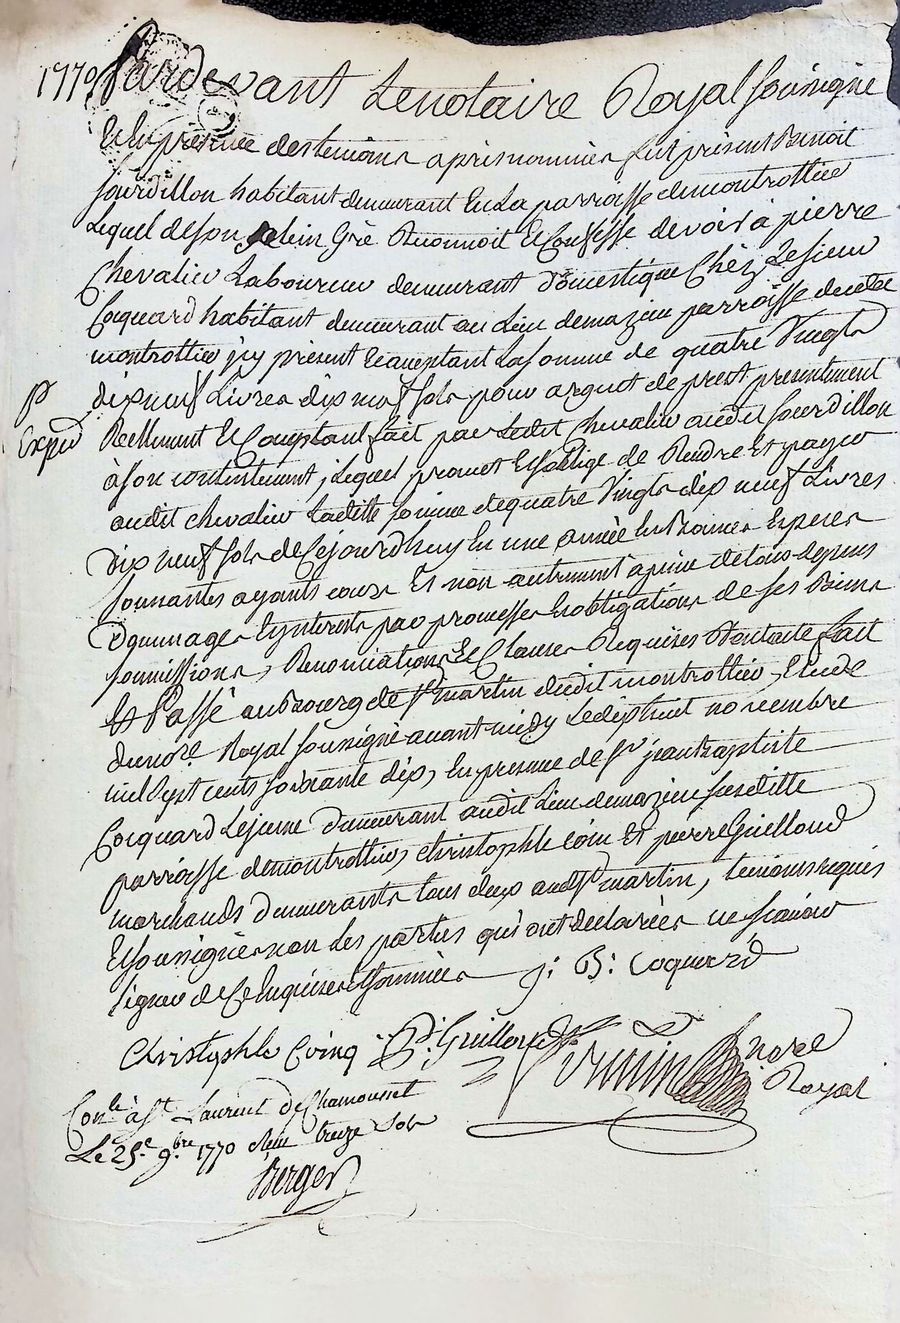 1770 Pardevant Lenotaire Royal soussigné
Et En presence des temoins apres nommés fut présent Benoit
Jourdillon habitant demeurant En La parroisse demontrottier
Lequel deson plein Gré Reconnoit Et Confesse devoir à pierre
Chevalier Laboureur demeurant Domestique Chéz Lesieur
Coquard habitant demeurant au Lieu demazieu parroisse dudit
montrottier jcy présent Et aceptant La somme de quatre Vingts
dix neuf Livres dix neuf sols pour argent de prest presentement
p
Expié
Reellement Et Comptant fait par Ledit Chevalier audit Jourdillon
à son contentement, jcequel promet Et soblige de Rendre Et payer
audit chevalier Laditte somme dequatre Vingts dix neuf Livres
Dix neuf sols de Cejourdhuy En une année En Bonnes Especes
sonnantes ayants cours Et non autrement a peine detous depens
Dommages Et jnterests par promesses Et obligations de ses Biens
soumissions, Renonciations Et Clauses Requises Dont acte fait
Et Passé auBourg de St martin dudit montrottier, Etude
du nore. Royal soussigné avant midy Ledixhuit novembre
mil sept cents soixante dix, En presence de Sr jean baptiste
Coquard Lejeune demeurant audit Lieu demazieu susditte
parroisse demontrottier, christophle Coin Et pierre Guilloud
marchands demeurants tous deux audt St martin, temoins requis
Et soussignés non Les parties qu'ont declarées ne scavoir
signer de Ce Enquises Et sommées j: B: coquard
Christophle Coinq P. Guilloud
nore
Royal
Conlé à St Laurent De Chamousset
Le 25e. 9.bre 1770 Reçu treize sols
Berger